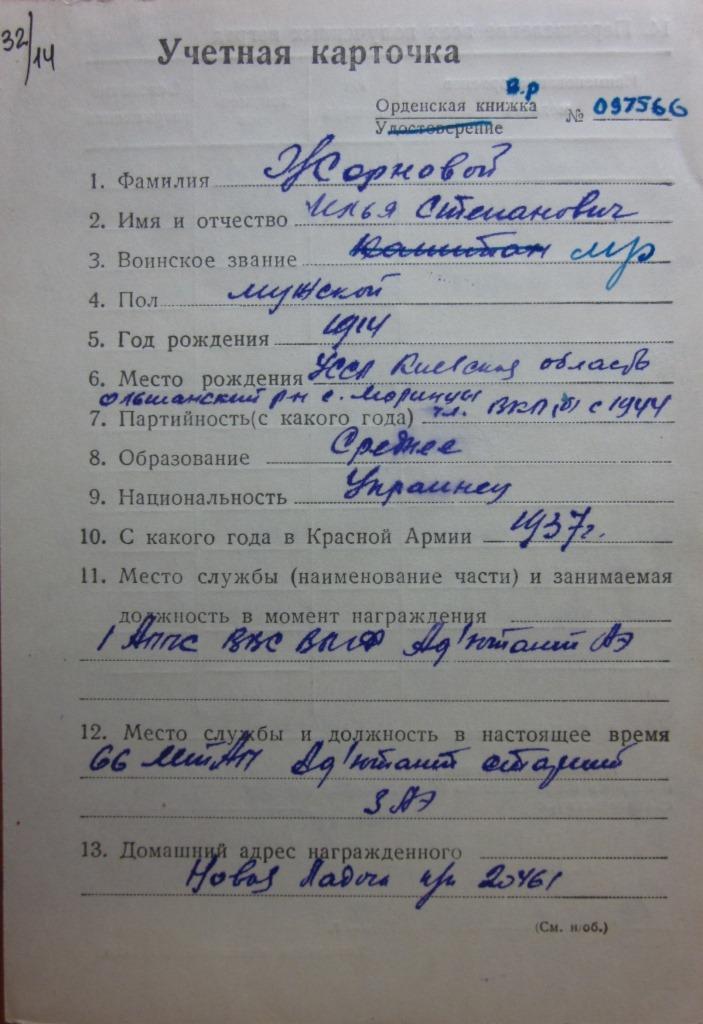 32/14
Учетная карточка
В.р
Орденская книжка
Удостоверение № 097566
1. Фамилия Жорновой
2. Имя и отчество Илья Степанович
3. Воинское звание Капитан м-р
4. Пол мужской
5. Год рождения 1914
6. Место рождения УССР Киевская область
Ольшанский р-н с. Моринцы
7. Партийность(с какого года) чл. ВКП(б) с 1944
8. Образование Среднее
9. Национальность Украинец
10. С какого года в Красной Армии 1937г.
11. Место службы (наименование части) и занимаемая
должность в момент награждения
1 ВВС ВМФ Ад'ютант АЭ
12. Место службы и должность в настоящее время
66 МТАП Ад'ютант старший
3 АЭ
13. Домашний адрес награжденного
Новая Ладога п/я 20461
(См. н/об.)